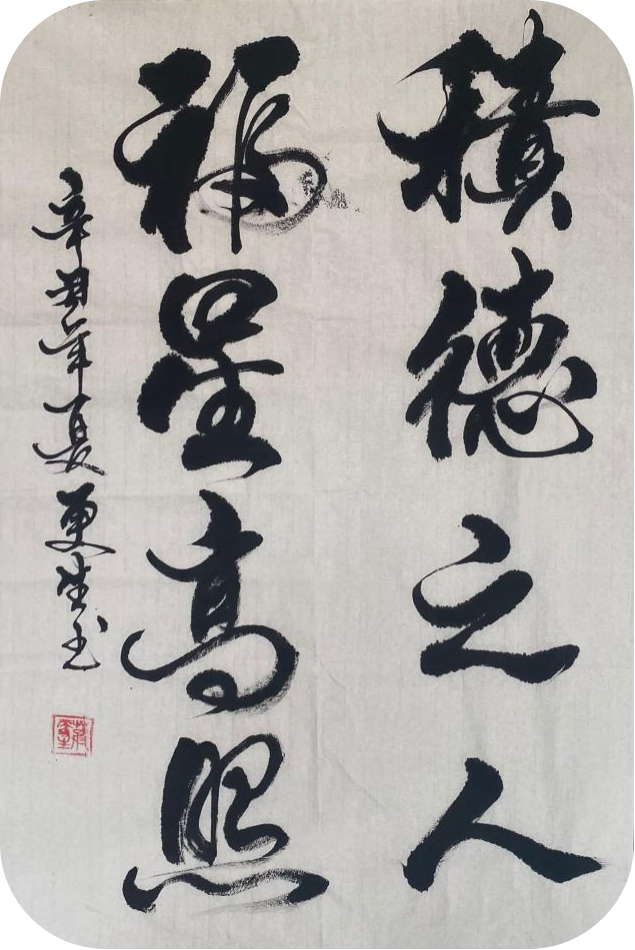 積德之人
福星高照
辛丑年夏更生书